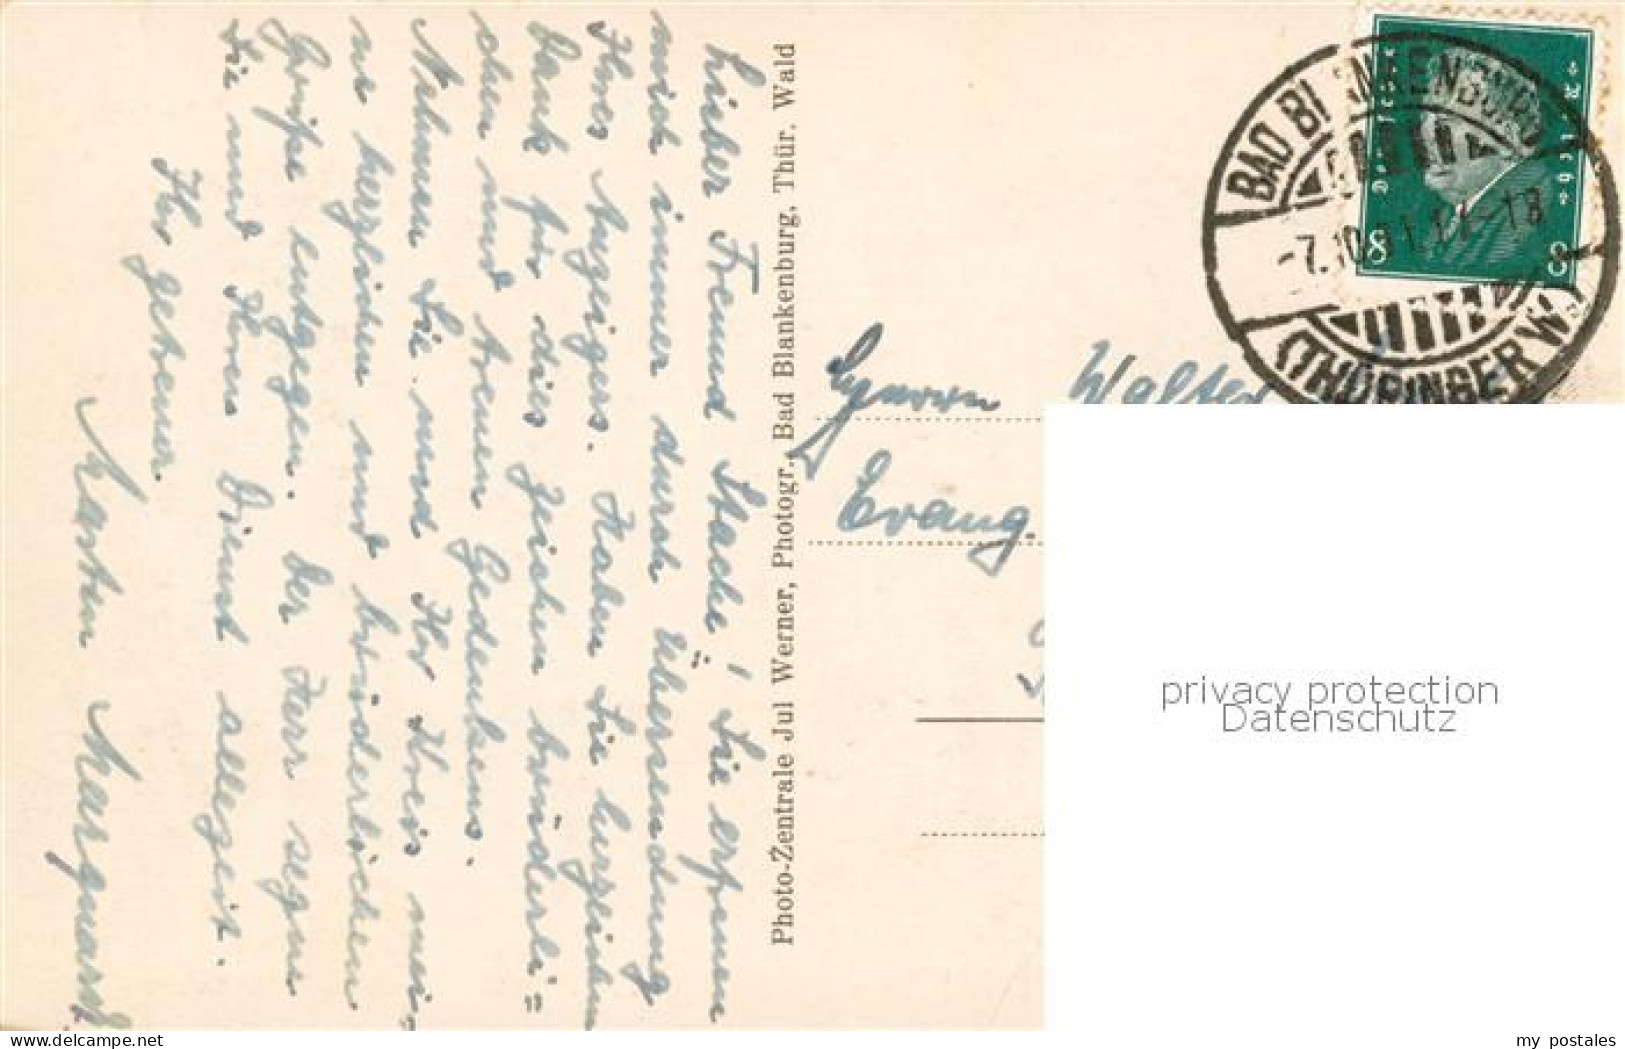 Lieber Freund Stache! Sie erfreuen
mich immer durch Übersendung
Ihres Anzeigers. Haben Sie herzlichen
Dank für dies Zeichen brüderli=
chen und treuen Gedenkens.
Nehmen Sie und Ihr Kreis mei-
ne herzlichen und brüderlichen
Grüße entgegen. Der Herr segne
Sie und Ihren Dienst allezeit.
Ihr getreuer
Karsten Marquardt
Photo-Zentrale Jul Werner, Photogr., Bad Blankenburg, Thür. Wald
Deutsches Reich
8 8
BAD BLANKENBURG
-7.10.31.17-18
(THÜRINGERW.
Herrn Walter
Evang.
privacy protection
Datenschutz
www.delcampe.net
my_postales